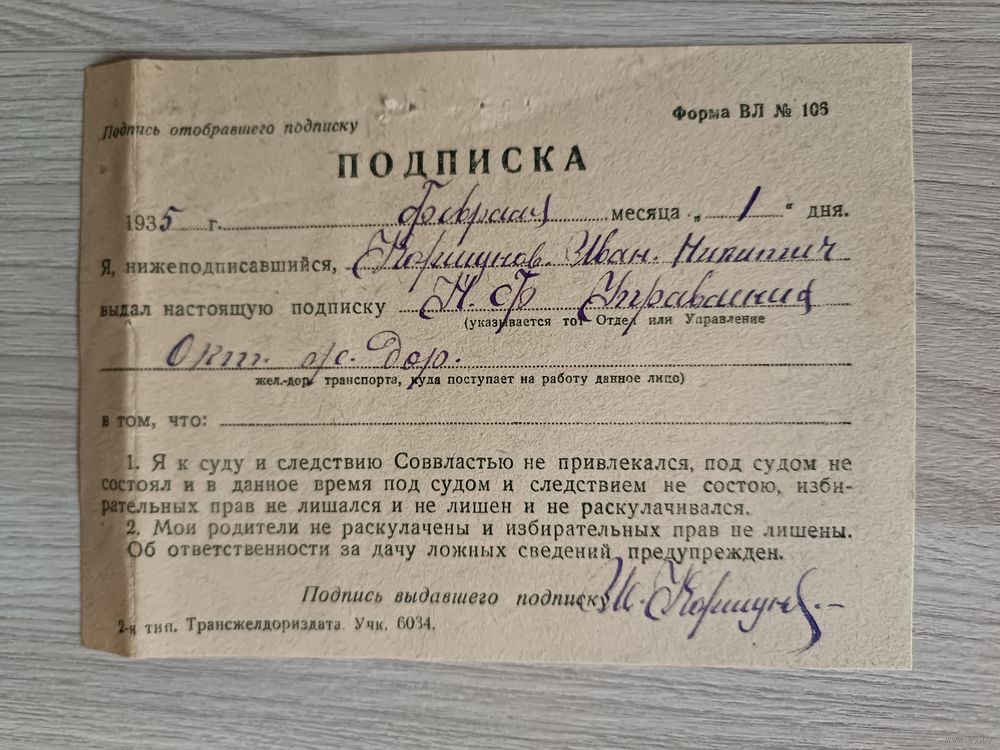 Форма ВЛ № 106
Подпись отобравшего подписку
ПОДПИСКА
1935 г. Февраля месяца „ 1 “ дня.
Я, нижеподписавшийся, Коршунов. Иван. Никитич
выдал настоящую подписку Н. Ф Управления
(указывается тот Отдел или Управление
Окт. ж. Дор.
жел.-дор. транспорта, куда поступает на работу данное лицо)
в том, что:
1. Я к суду и следствию Соввластью не привлекался, под судом не
состоял и в данное время под судом и следствием не состою, изби-
рательных прав не лишался и не лишен и не раскулачивался.
2. Мои родители не раскулачены и избирательных прав не лишены.
Об ответственности за дачу ложных сведений предупрежден.
Подпись выдавшего подписку Коршунов
2-я тип. Трансжелдориздата. Учк. 6034.